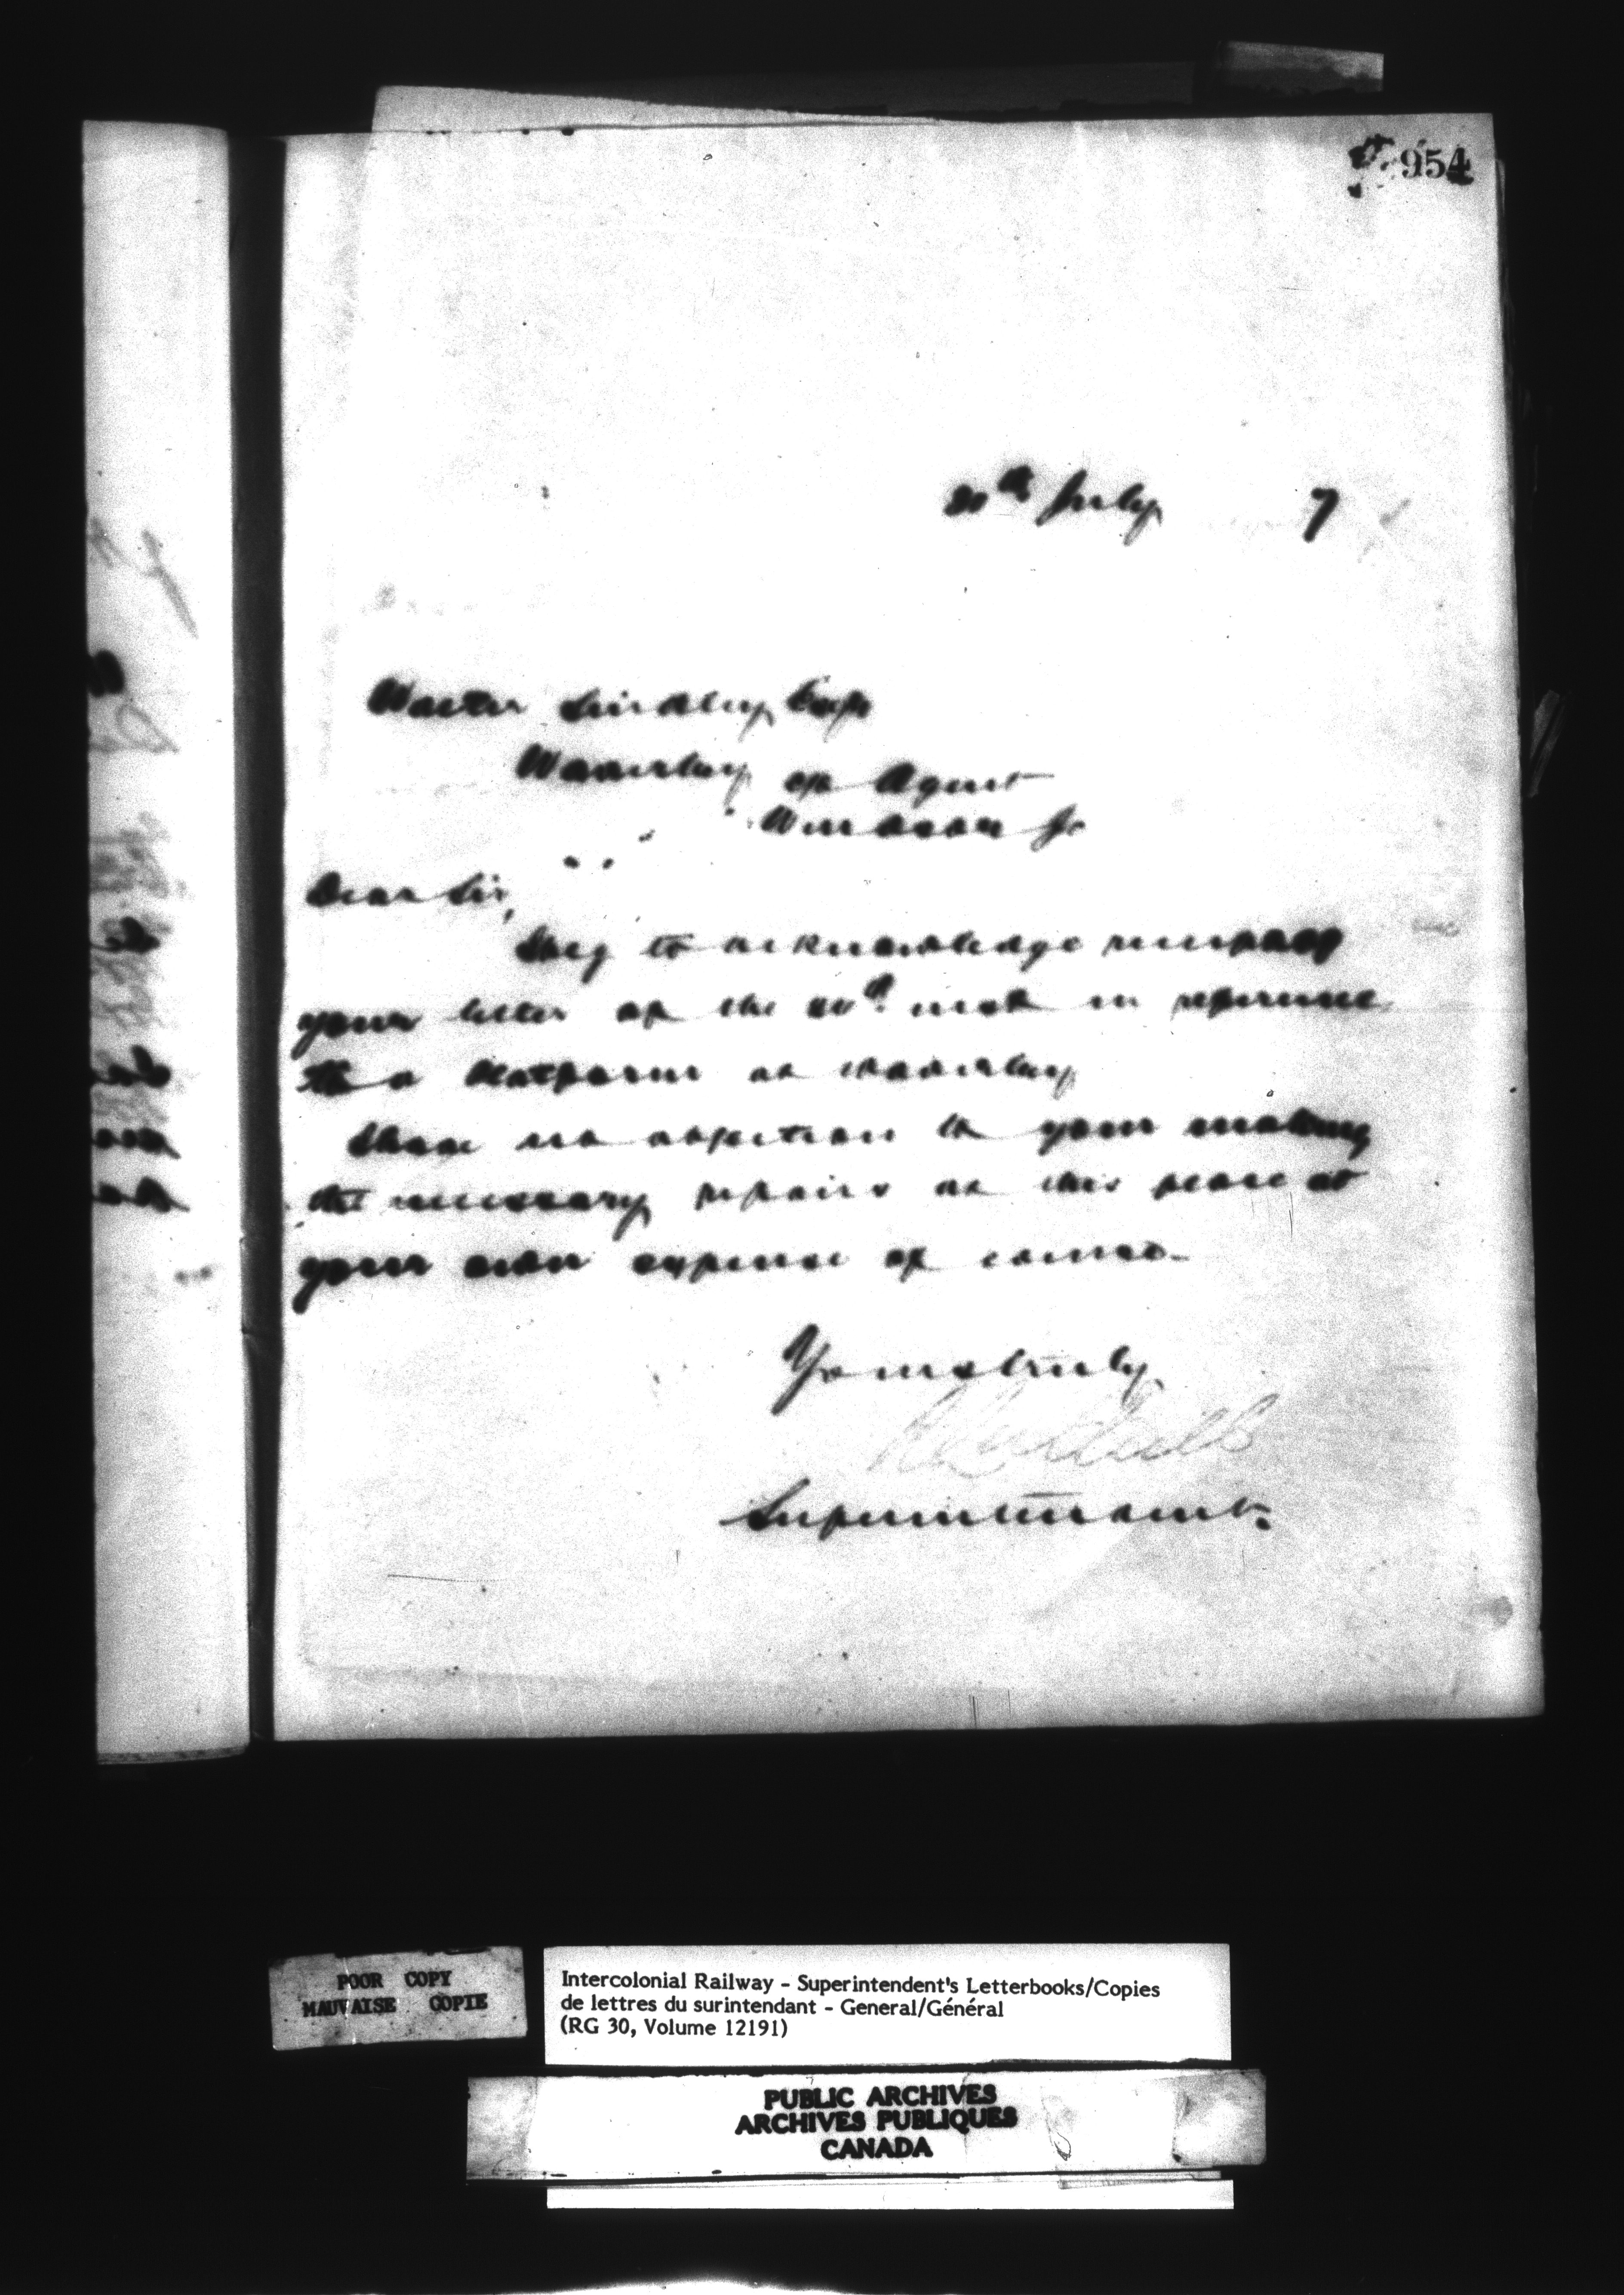 954
July 7
Walter Lindley Esqr
Waverley
Agent
Windsor Jc
Dear Sir,
I beg to acknowledge receipt of
your letter of the inst in reference
to a Platform at Waverley
I have no objection to your making
the necessary repairs at this place at
your own expense of course.
Yours truly
Superintendent.
POOR COPY
MAUVAISE COPIE
Intercolonial Railway - Superintendent's Letterbooks/Copies
de lettres du surintendant - General/Général
(RG 30, Volume 12191)
PUBLIC ARCHIVES
ARCHIVES PUBLIQUES
CANADA